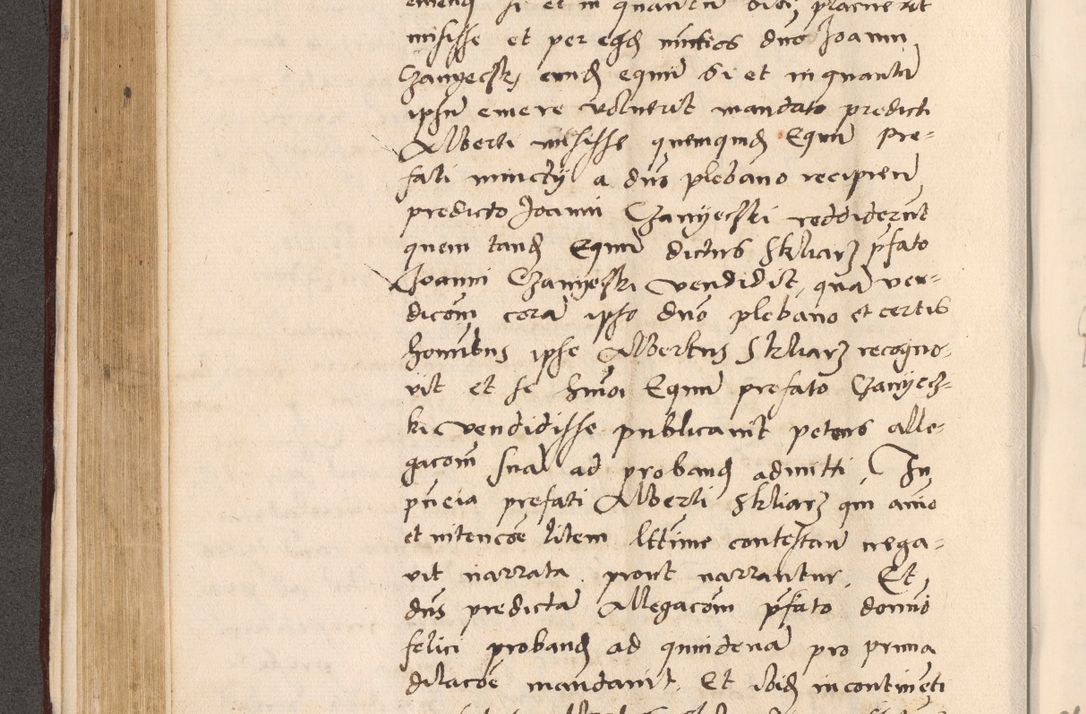 emend si et in quantu sibi placuerit
misisse et per eosd nuncios dno Joanni
Czanyecski eund equu si et in quantu
ipsu emere voluerit mandato predicti
Alberti misisse quemquid Equu pre-
fati nunctij a dno plebano recipien
predicto Joanni Czanyecski reddiderunt
quem tand Equu dictus Skliarz pfato
Joanni Czanyeski vendidit, qua ver-
dicom cora ipso dno plebano et certis
hominibus ipse Albertus Skliarz recogno-
vit et se hmoi Equu prefato Czanyecz-
ki vendidisse publicavit petens alle-
gacom sua ad proband admitti. In
pncia prefati Alberti Skliarz qui animo
et intencoe litem lttime contestan nega-
vit narrata prout narrantur. Et
dns predicta Allegacom pfato domino
felici proband ad quindena pro prima
dilacoe mandavit. Et ibid incontinenti